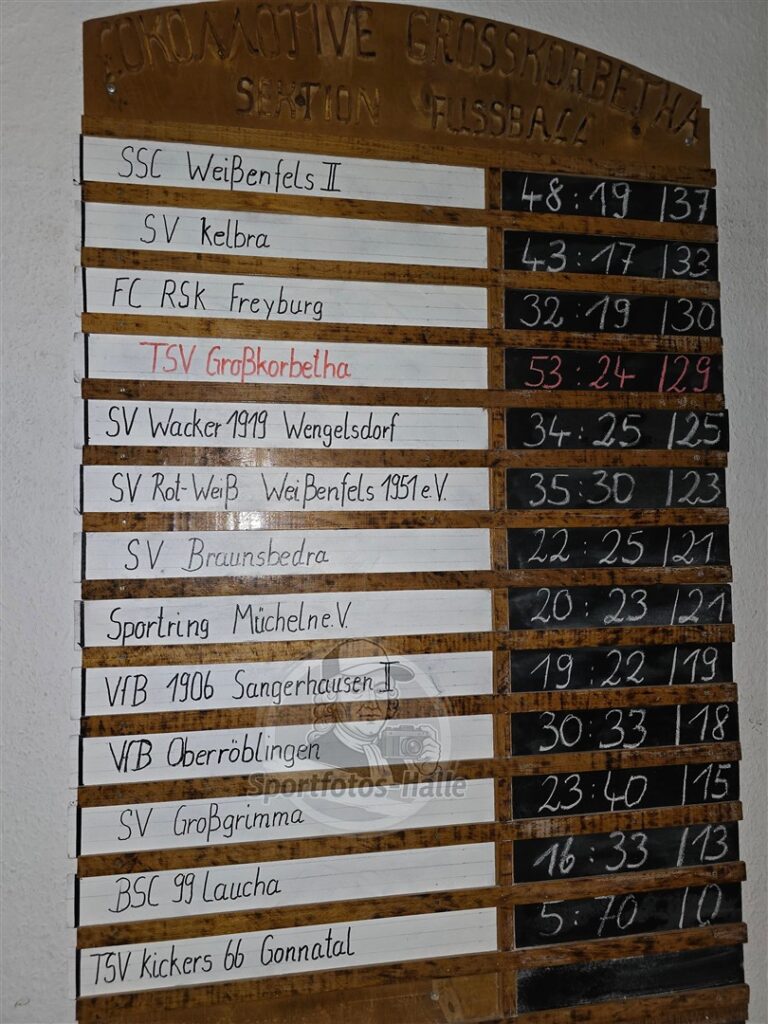 LOKOMOTIVE GROSSKORBETHA
SEKTION FUSSBALL
SSC Weißenfels II 48:19 |37
SV Kelbra 43:17 |33
FC RSK Freyburg 32:19 |30
TSV Großkorbetha 53:24 |29
SV Wacker 1919 Wengelsdorf 34:25 |25
SV Rot-Weiß Weißenfels 1951 e.V. 35:30 |23
SV Braunsbedra 22:25 |21
Sportring Mücheln e.V. 20:23 |21
VfB 1906 Sangerhausen II 19:22 |19
VfB Oberröblingen 30:33 |18
SV Großgrimma 23:40 |15
BSC 99 Laucha 16:33 |13
TSV Kickers 66 Gonnatal 5:70 |0
Sportfotos-Halle